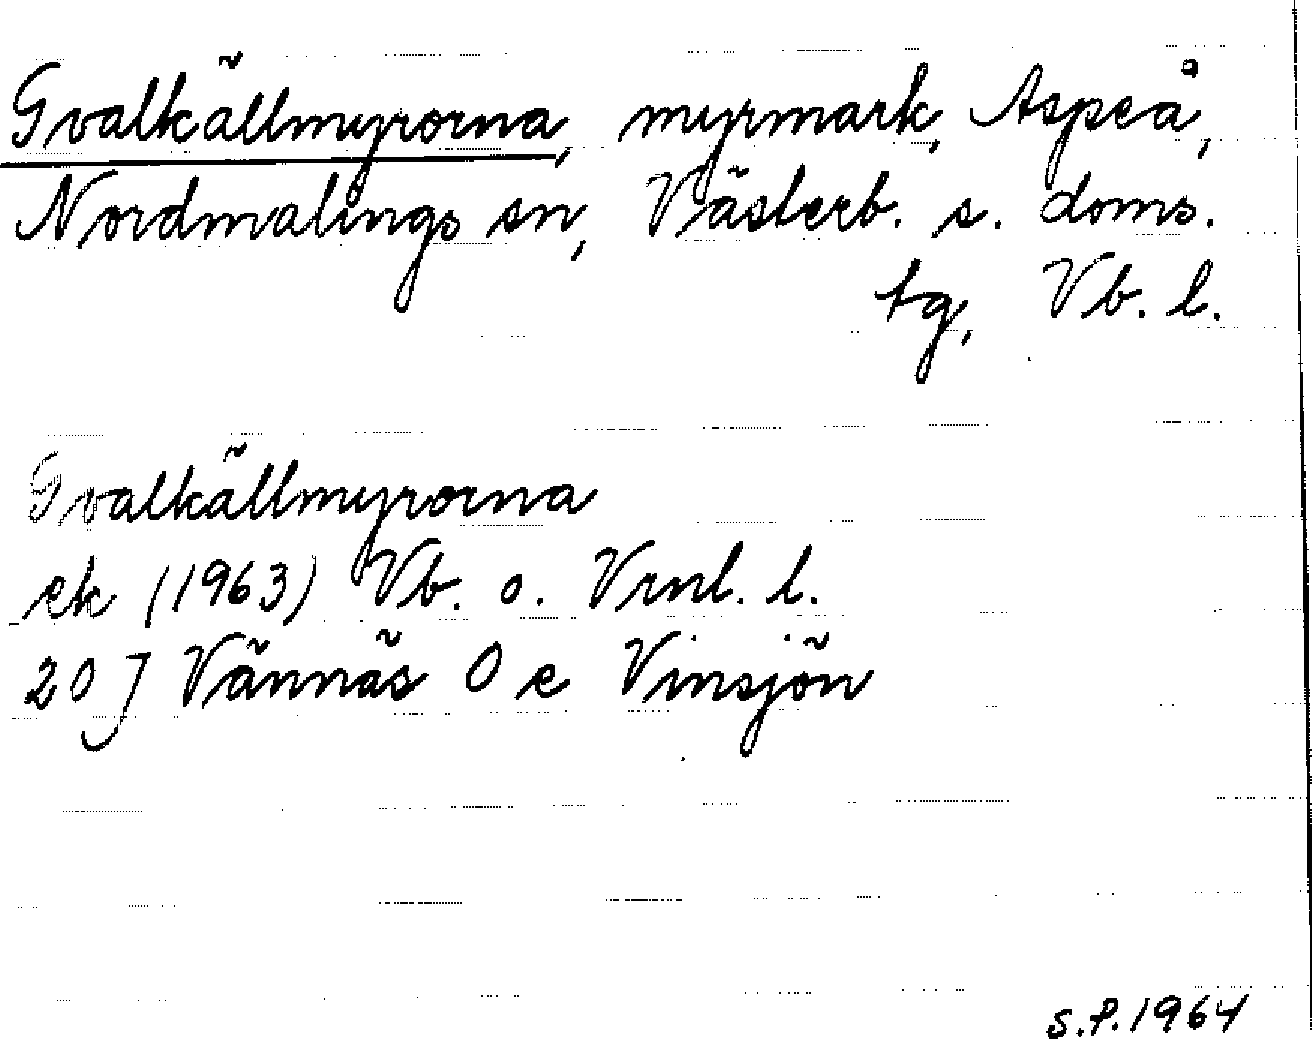 Gvalkällmyrorna, myrmark, Aspeå,
Nordmalings sn, Västerb. s. doms.
tg, Vb. l.
Gvalkällmyrorna
ek (1963) Vb. o. Vrml. l.
20 J Vännäs O e Vinsjön
S.P. 1964